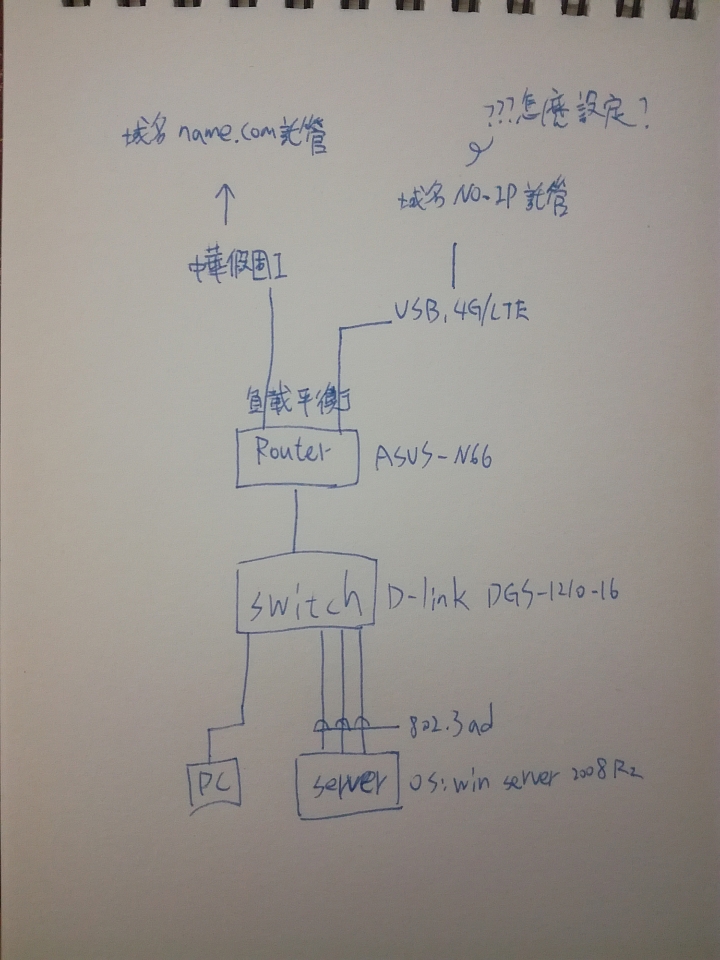 ???怎麼設定?
域名 name.com託管
域名 NO-IP 託管
中華假固I
USB.4G/LTE
負載平衡
Router
ASUS-N66
switch
D-link DGS-1210-16
802.3ad
PC
server
OS:win server 2008R2